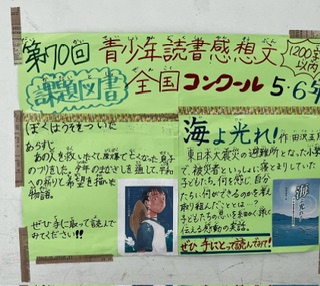 第70回 青少年読書感想文 1200字以内
課題図書 全国コンクール 5・6年
ぼくはうそをついた
あらすじ
へのつりました。少年のまなざしを通して、平和
への祈りと希望を描いた
物語。
ぜひ手に取って読んで
みてください!!
海よ光れ!
作・田沢五月
東日本大震災の避難所となった小学
で、被災者といっしょに寝とまりしていた
子どもたち。何を感じ、自分
たちに何ができるのかを考え
取り組んだこととは…?
子どもたちの思いを細かく深く
伝える感動の実話。
ぜひ、手にとって読んでみて!
海よ光れ!